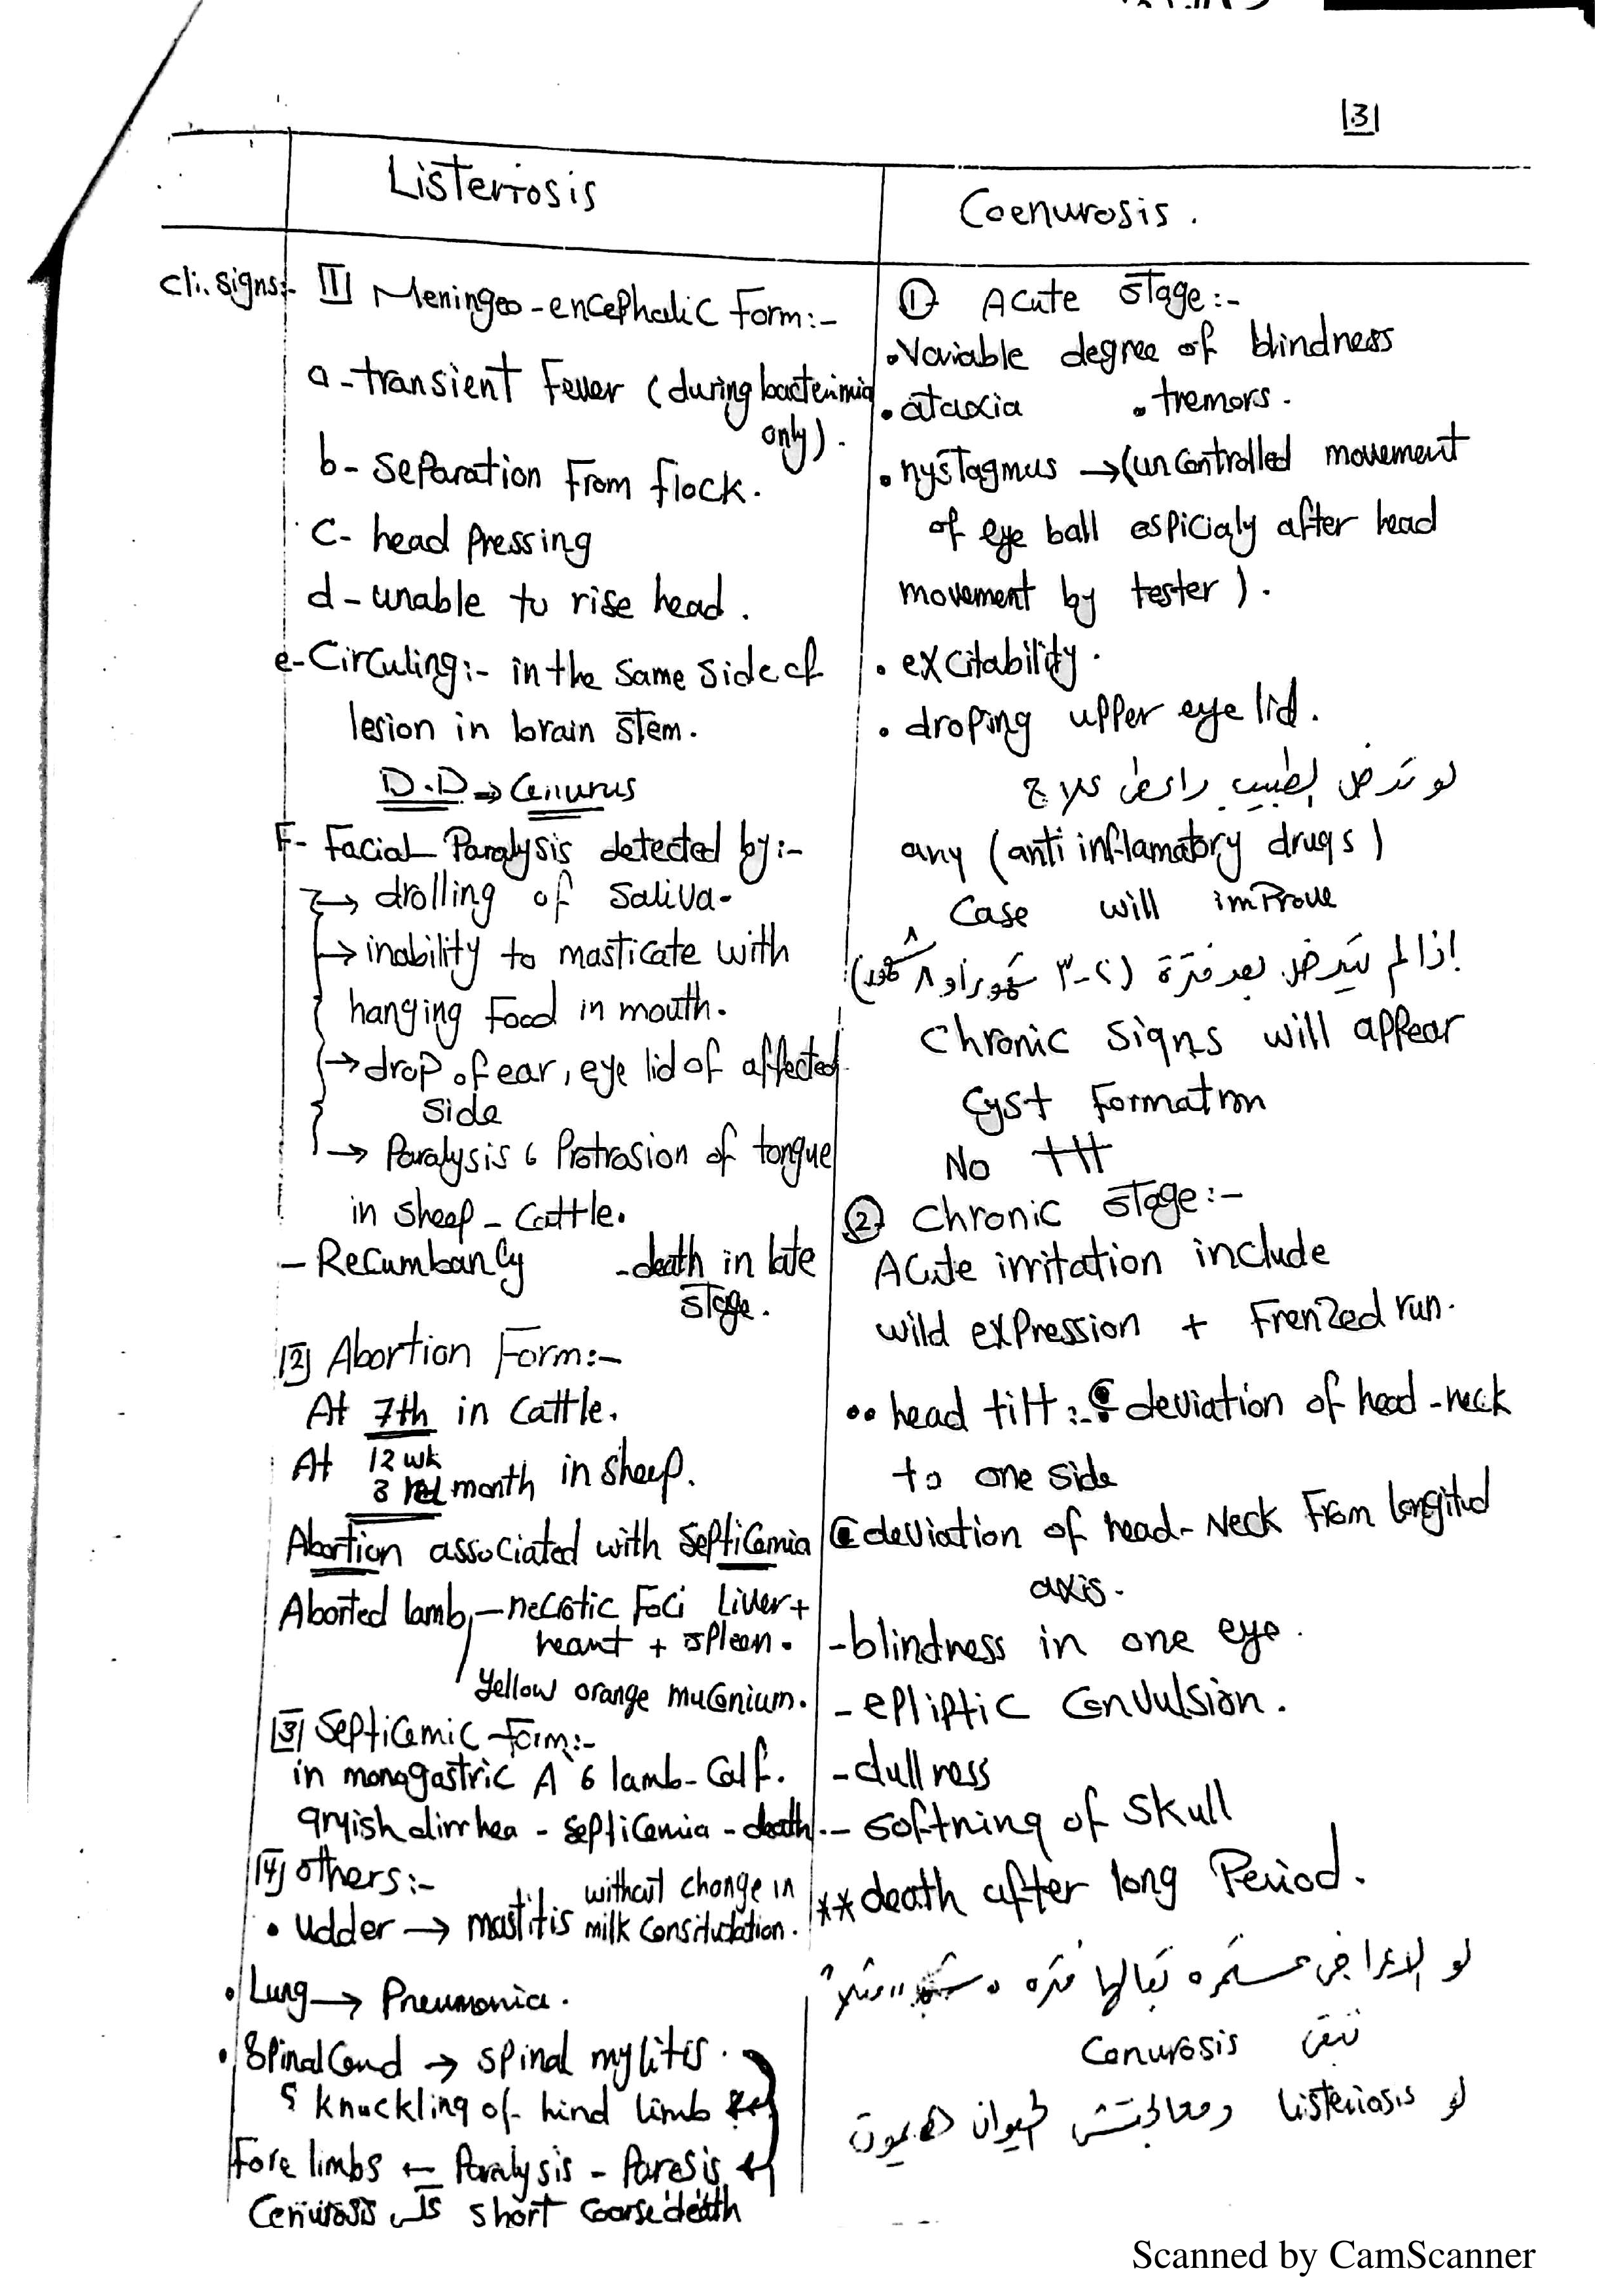 |3|
Listeriosis
Coenurosis.
cli. signs:-
|1| Meningeo-encephalic Form:-
a-transient Fever (during bacterimia
only).
b- separation From flock.
C- head pressing
d- unable to rise head.
e- Circuling:- in the same side of
lesion in brain stem.
D.D → Cenurus
F- Facial Paralysis detected by:-
→ drolling of saliva-
→ inability to masticate with
hanging Food in mouth.
→ drop of ear, eye lid of affected
side
→ Paralysis 6 Protrosion of tongue
in sheep - Cattle.
- Recumbancy -death in late
stage.
|2| Abortion Form:-
At 7th in Cattle.
At 12 wk
3 month in sheep.
Abortion associated with septicemia
Aborted lamb - necrotic Foci Liver +
heart + spleen.
yellow orange muconium.
|3| Septicemic Form:-
in monogastric A 6 lamb- Calf.
gryish dirrhea - septicemia - death
|4| others:-
• udder → mastitis without change in
milk consitutation.
• Lung → Pneumonia.
• Spinal Cord → spinal mylitis.
knuckling of hind limb
Fore limbs ← Paralysis - Paresis
Cenurosis short coarse death
① Acute stage:-
• Variable degree of blindness
• ataxia • tremors.
• nystagmus → (uncontrolled movement
of eye ball espicialy after head
movement by tester).
• excitability.
• droping upper eye lid.
لو تعرض لطبيب واعطى علاج
any (anti inflamatory drugs)
Case will improve
إذا لم يتعرض بعد فترة (٢-٣ شهور او ٨ شهور)
Chronic signs will appear
Cyst Formation
No ttt
② Chronic stage:-
Acute irritation include
wild expression + Frenzed run.
•• head tilt:- deviation of head-neck
to one side
deviation of head- Neck From longitud
axis.
-blindness in one eye.
- epliptic Convulsion.
- dullness
- softning of skull
** death after long Period.
لو الاعراض مستمره بقالها فتره مثلا
تبقى Cenurosis
لو listeriosis ومعالجتش الحيوان هيموت
Scanned by CamScanner